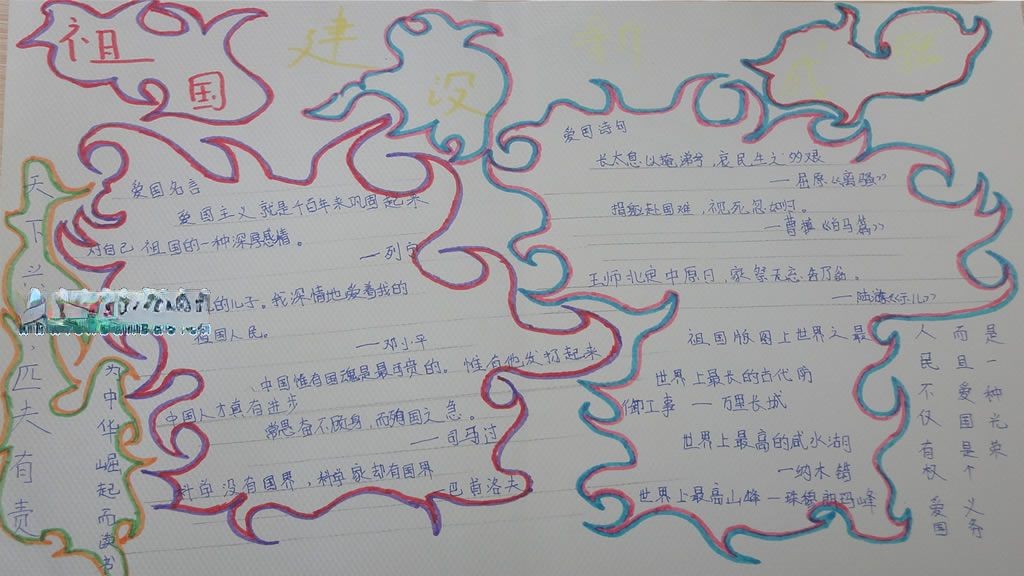 祖国
建设
爱国名言
爱国主义就是千百年来巩固起来
对自己祖国的一种深厚感情。
—列宁
的儿子。我深情地爱着我的
祖国人民。
—邓小平
中国惟有国魂是最可贵的。惟有他发扬起来
中国人才真有进步
常思奋不顾身,而殉国之急。
——司马迁
科学没有国界,科学家却有国界
巴甫洛夫
爱国诗句
长太息以掩涕兮,哀民生之多艰
—屈原《离骚》
捐躯赴国难,视死忽如归。
—曹植《白马篇》
王师北定中原日,家祭无忘告乃翁。
—陆游《示儿》
祖国版图上世界之最
世界上最长的古代防
御工事—万里长城
世界上最高的咸水湖
—纳木错
世界上最高山峰—珠穆朗玛峰
天下兴
匹夫有责
为中华崛起而读书
是一种光荣
而且爱国是个义务
人民不仅有权爱国